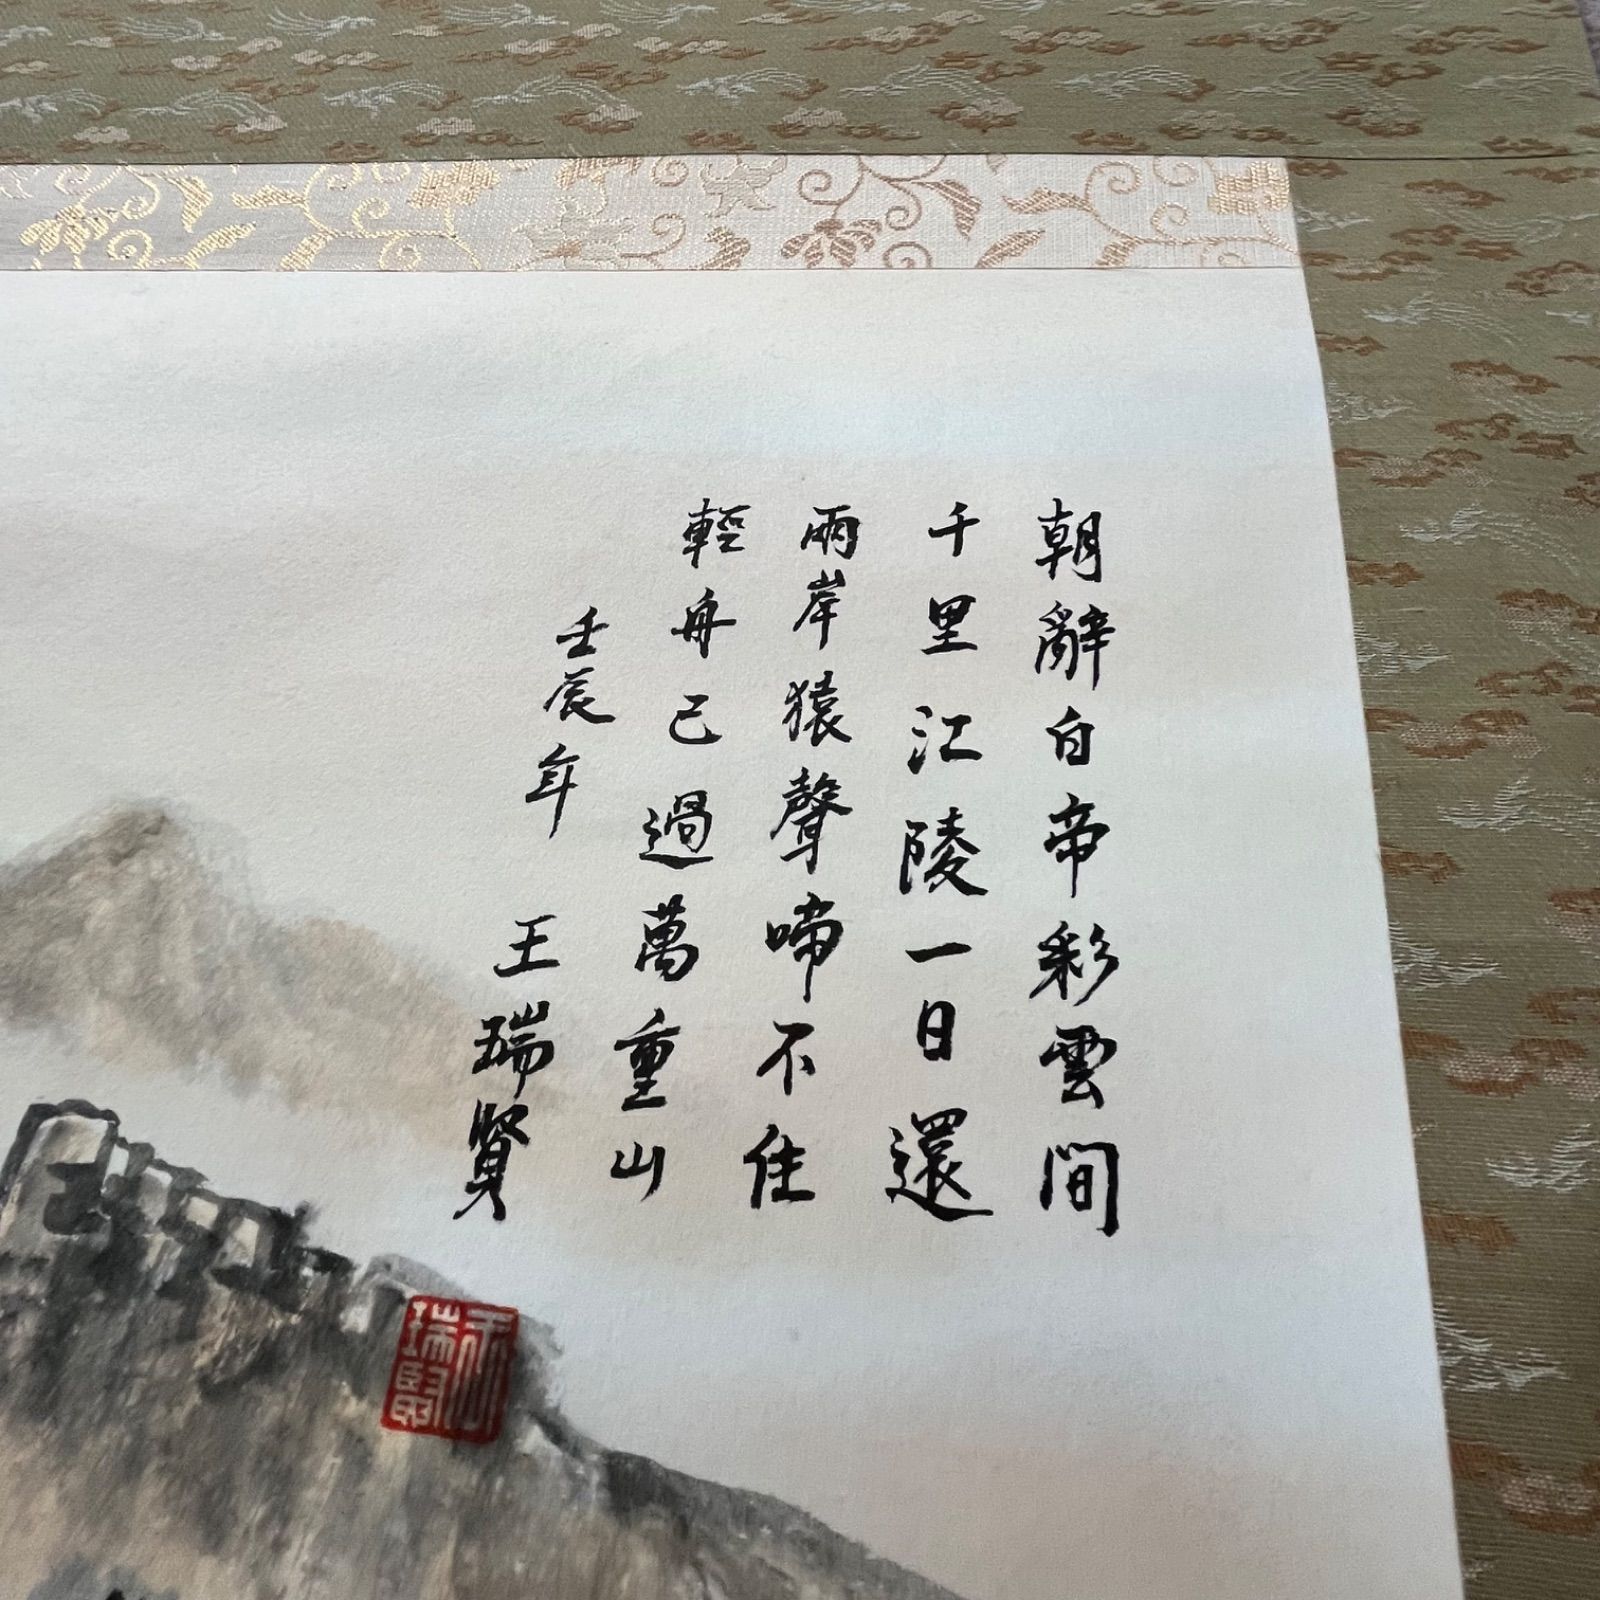 朝辭白帝彩雲間
千里江陵一日還
兩岸猿聲啼不住
輕舟已過萬重山
壬辰年 王瑞賢
王瑞賢